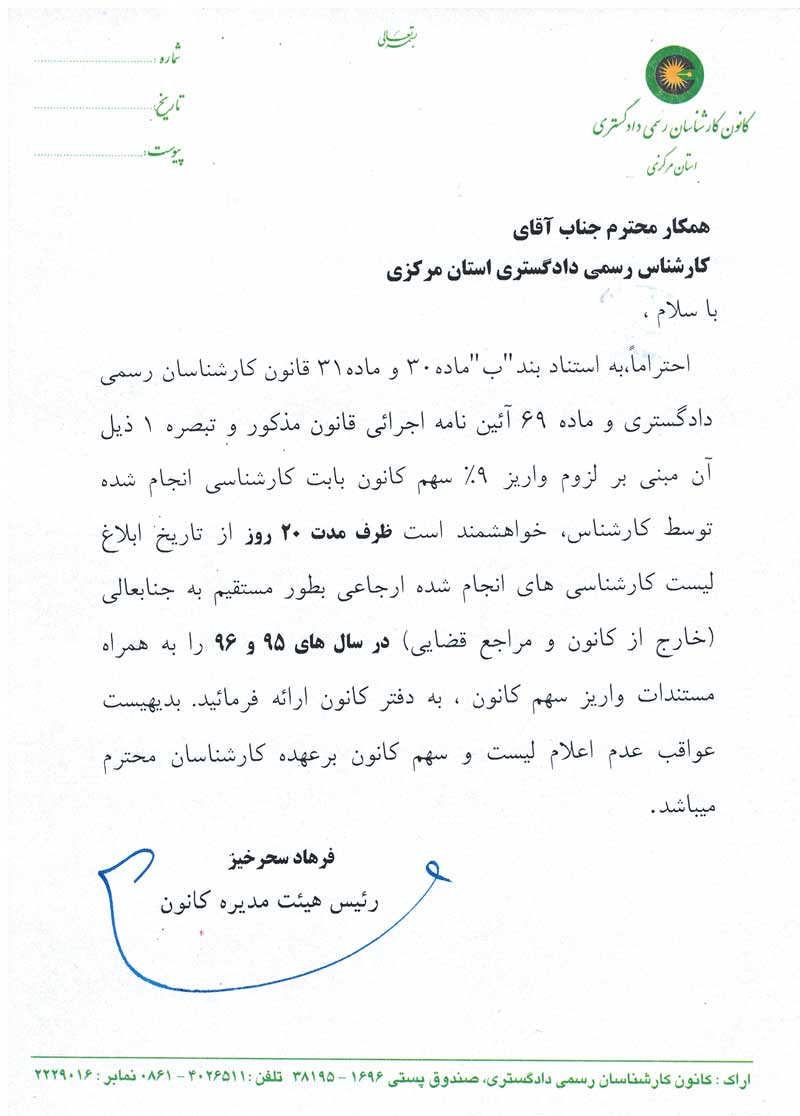 بسمه تعالی
کانون کارشناسان رسمی دادگستری
استان مرکزی
شماره :
تاریخ:
پیوست:
همکار محترم جناب آقای
کارشناس رسمی دادگستری استان مرکزی
با سلام ،
احتراماً،به استناد بند"ب"ماده۳۰ و ماده۳۱ قانون کارشناسان رسمی
دادگستری و ماده ۶۹ آئین نامه اجرائی قانون مذکور و تبصره ۱ ذیل
آن مبنی بر لزوم واریز ۹٪ سهم کانون بابت کارشناسی انجام شده
توسط کارشناس، خواهشمند است ظرف مدت ۲۰ روز از تاریخ ابلاغ
لیست کارشناسی های انجام شده ارجاعی بطور مستقیم به جنابعالی
(خارج از کانون و مراجع قضایی) در سال های ۹۵ و ۹۶ را به همراه
مستندات واریز سهم کانون ، به دفتر کانون ارائه فرمائید. بدیهیست
عواقب عدم اعلام لیست و سهم کانون برعهده کارشناسان محترم
میباشد.
فرهاد سحرخیز
رئیس هیئت مدیره کانون
اراک : کانون کارشناسان رسمی دادگستری، صندوق پستی ۱۶۹۶ - ۳۸۱۹۵ تلفن :۴۰۲۶۵۱۱ - ۰۸۶۱ نمابر : ۲۲۲۹۰۱۶